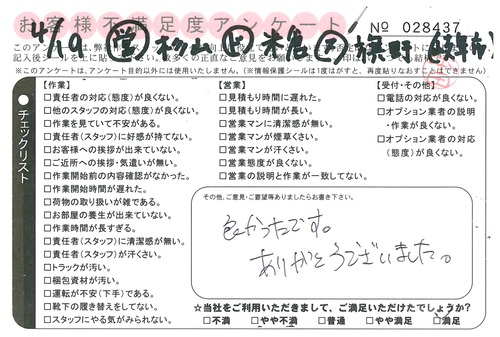 お客様不満足度アンケート
№ 028437
4/19 営 杉山
※このアンケートは、アンケート目的以外には使用いたしません。（※情報保護シールは1度はがすと、再度貼りなおすことはできません）
チェックリスト
【作業】
□責任者の対応（態度）が良くない。
□他のスタッフの対応（態度）が良くない。
□作業を見ていて不安がある。
□責任者（スタッフ）に好感が持てない。
□お客様への挨拶が出来ていない。
□ご近所への挨拶・気遣いが無い。
□作業開始前の内容確認がなかった。
□作業開始時間が遅れた。
□荷物の取り扱いが雑である。
□お部屋の養生が出来ていない。
□作業時間が長すぎる。
□責任者（スタッフ）に清潔感が無い。
□責任者（スタッフ）が汗くさい。
□トラックが汚い。
□梱包資材が汚い。
□運転が不安（下手）である。
□靴下の履き替えをしてない。
□スタッフにやる気がみられない。
【営業】
□見積もり時間に遅れた。
□見積もり時間が長い。
□営業マンに清潔感が無い。
□営業マンが煙草くさい。
□営業マンが汗くさい。
□営業態度が良くない。
□営業の説明と作業が一致してない。
【受付・その他】
□電話の対応が良くない。
□オプション業者の説明
・作業が良くない。
□オプション業者の対応
（態度）が良くない。
その他、ご意見・ご要望等ありましたらお書き下さい。
良かったです。
ありがとうございました。
☆当社をご利用いただきまして、ご満足いただけたでしょうか？
□不満 □やや不満 □普通 □やや満足 □満足